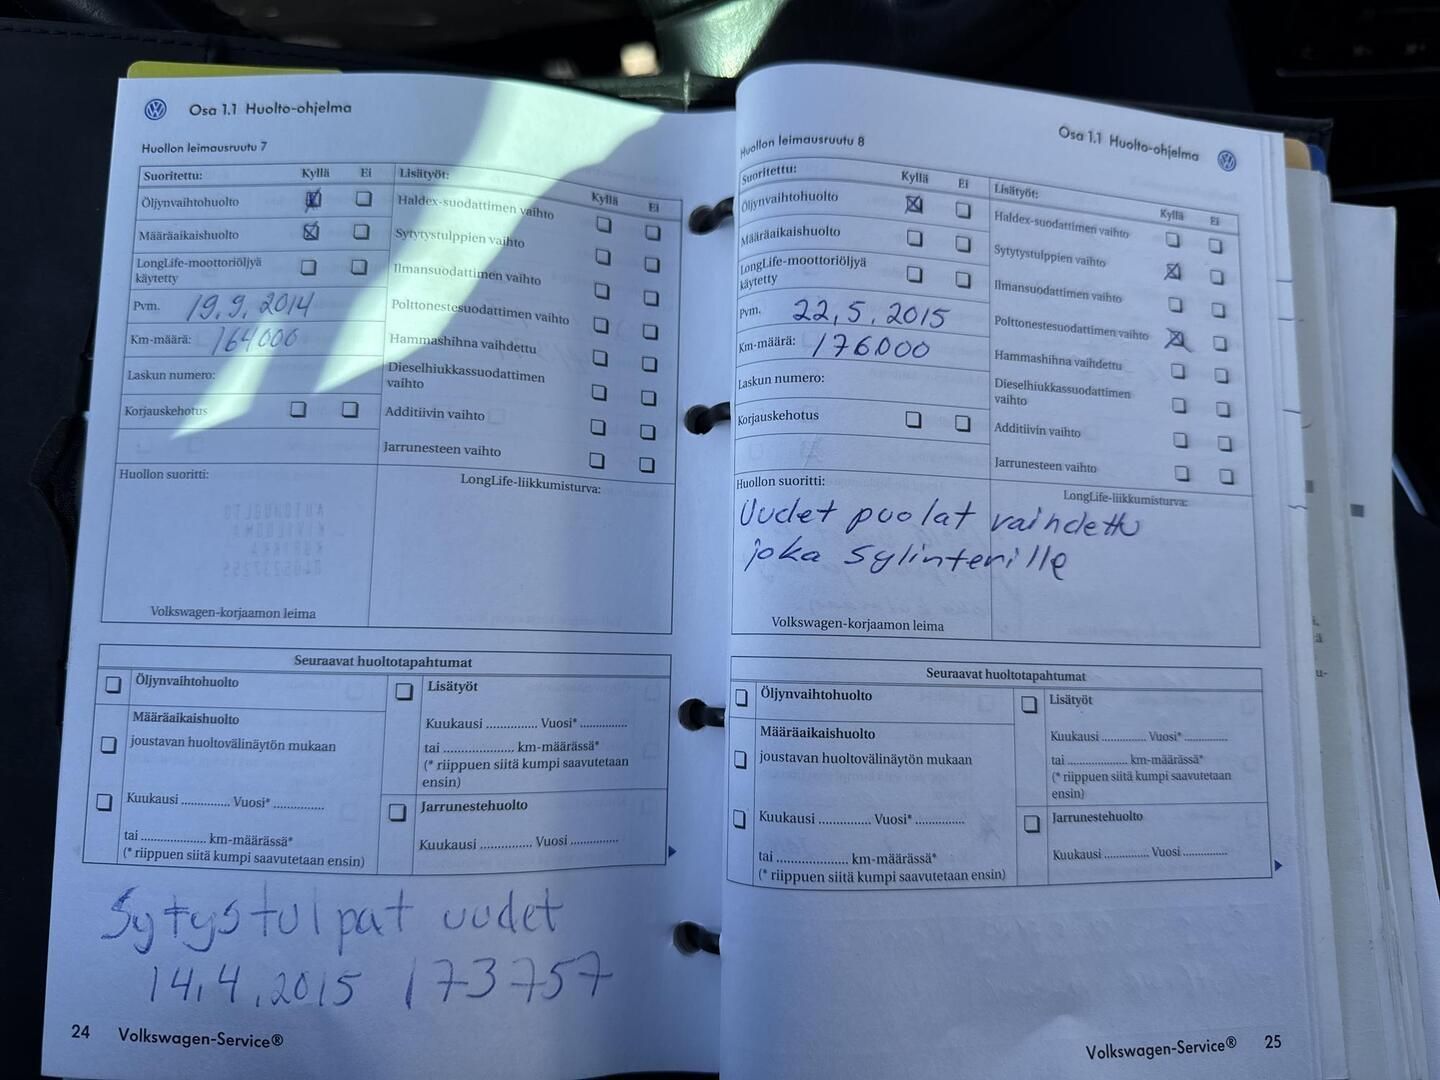 Osa 1.1 Huolto-ohjelma
Huollon leimausruutu 7
Suoritettu: Kyllä Ei
Öljynvaihtohuolto
Määräaikaishuolto
LongLife-moottoriöljyä
käytetty
Pvm. 19.9.2014
Km-määrä: 164000
Laskun numero:
Korjauskehotus
Lisätyöt: Kyllä Ei
Haldex-suodattimen vaihto
Sytytystulppien vaihto
Ilmansuodattimen vaihto
Polttonestesuodattimen vaihto
Hammashihna vaihdettu
Dieselhiukkassuodattimen
vaihto
Additiivin vaihto
Jarrunesteen vaihto
Huollon suoritti:
LongLife-liikkumisturva:
Volkswagen-korjaamon leima
Seuraavat huoltotapahtumat
Öljynvaihtohuolto
Määräaikaishuolto
joustavan huoltovälinäytön mukaan
Kuukausi .............. Vuosi* ..............
tai .................... km-määrässä*
(* riippuen siitä kumpi saavutetaan ensin)
Lisätyöt
Kuukausi ............... Vuosi* .............
tai ...................... km-määrässä*
(* riippuen siitä kumpi saavutetaan
ensin)
Jarrunestehuolto
Kuukausi ............... Vuosi ..............
Sytystulpat uudet
14.4.2015 173757
24 Volkswagen-Service®
Osa 1.1 Huolto-ohjelma
Huollon leimausruutu 8
Suoritettu: Kyllä Ei
Öljynvaihtohuolto
Määräaikaishuolto
LongLife-moottoriöljyä
käytetty
Pvm. 22.5.2015
Km-määrä: 176000
Laskun numero:
Korjauskehotus
Lisätyöt: Kyllä Ei
Haldex-suodattimen vaihto
Sytytystulppien vaihto
Ilmansuodattimen vaihto
Polttonestesuodattimen vaihto
Hammashihna vaihdettu
Dieselhiukkassuodattimen
vaihto
Additiivin vaihto
Jarrunesteen vaihto
Huollon suoritti:
LongLife-liikkumisturva:
Uudet puolat vaihdettu
joka sylinterille
Volkswagen-korjaamon leima
Seuraavat huoltotapahtumat
Öljynvaihtohuolto
Määräaikaishuolto
joustavan huoltovälinäytön mukaan
Kuukausi ............... Vuosi* ..............
tai ..................... km-määrässä*
(* riippuen siitä kumpi saavutetaan ensin)
Lisätyöt
Kuukausi ............. Vuosi* .............
tai ..................... km-määrässä*
(* riippuen siitä kumpi saavutetaan
ensin)
Jarrunestehuolto
Kuukausi .............. Vuosi .............
Volkswagen-Service® 25